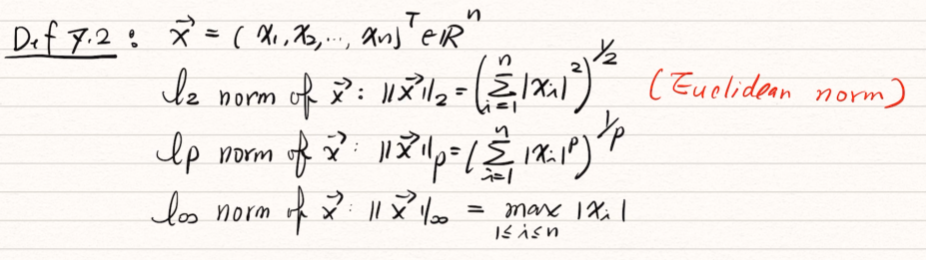 Def 7.2 : x⃗ = (x₁, x₂, ..., xₙ)ᵀ ∈ ℝⁿ
l₂ norm of x⃗ : ‖x⃗‖₂ = (∑ᵢ₌₁ⁿ |xᵢ|²)^{1/2} (Euclidean norm)
lp norm of x⃗ : ‖x⃗‖p = (∑ᵢ₌₁ⁿ |xᵢ|ᵖ)^{1/p}
l∞ norm of x⃗ : ‖x⃗‖∞ = max |xᵢ|
1≤i≤n